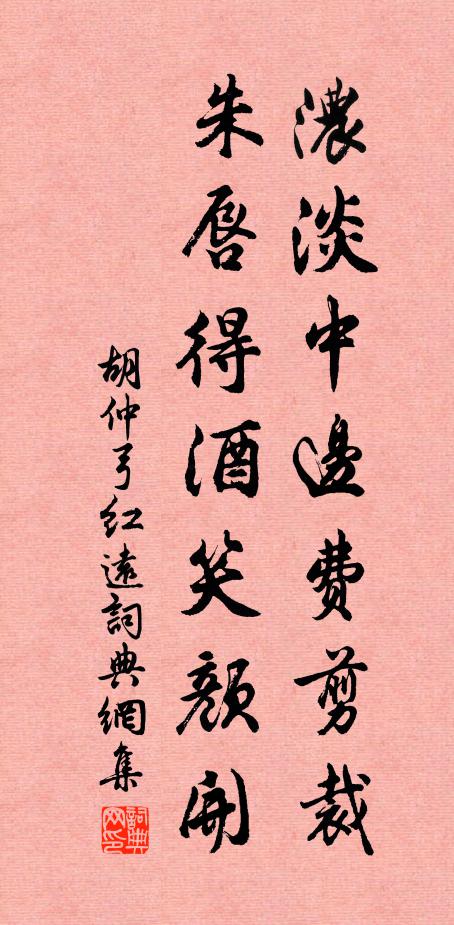 濃淡中邊費剪裁
朱唇得酒笑顏開
胡仲弓紅遠詞典網集
詞典网印